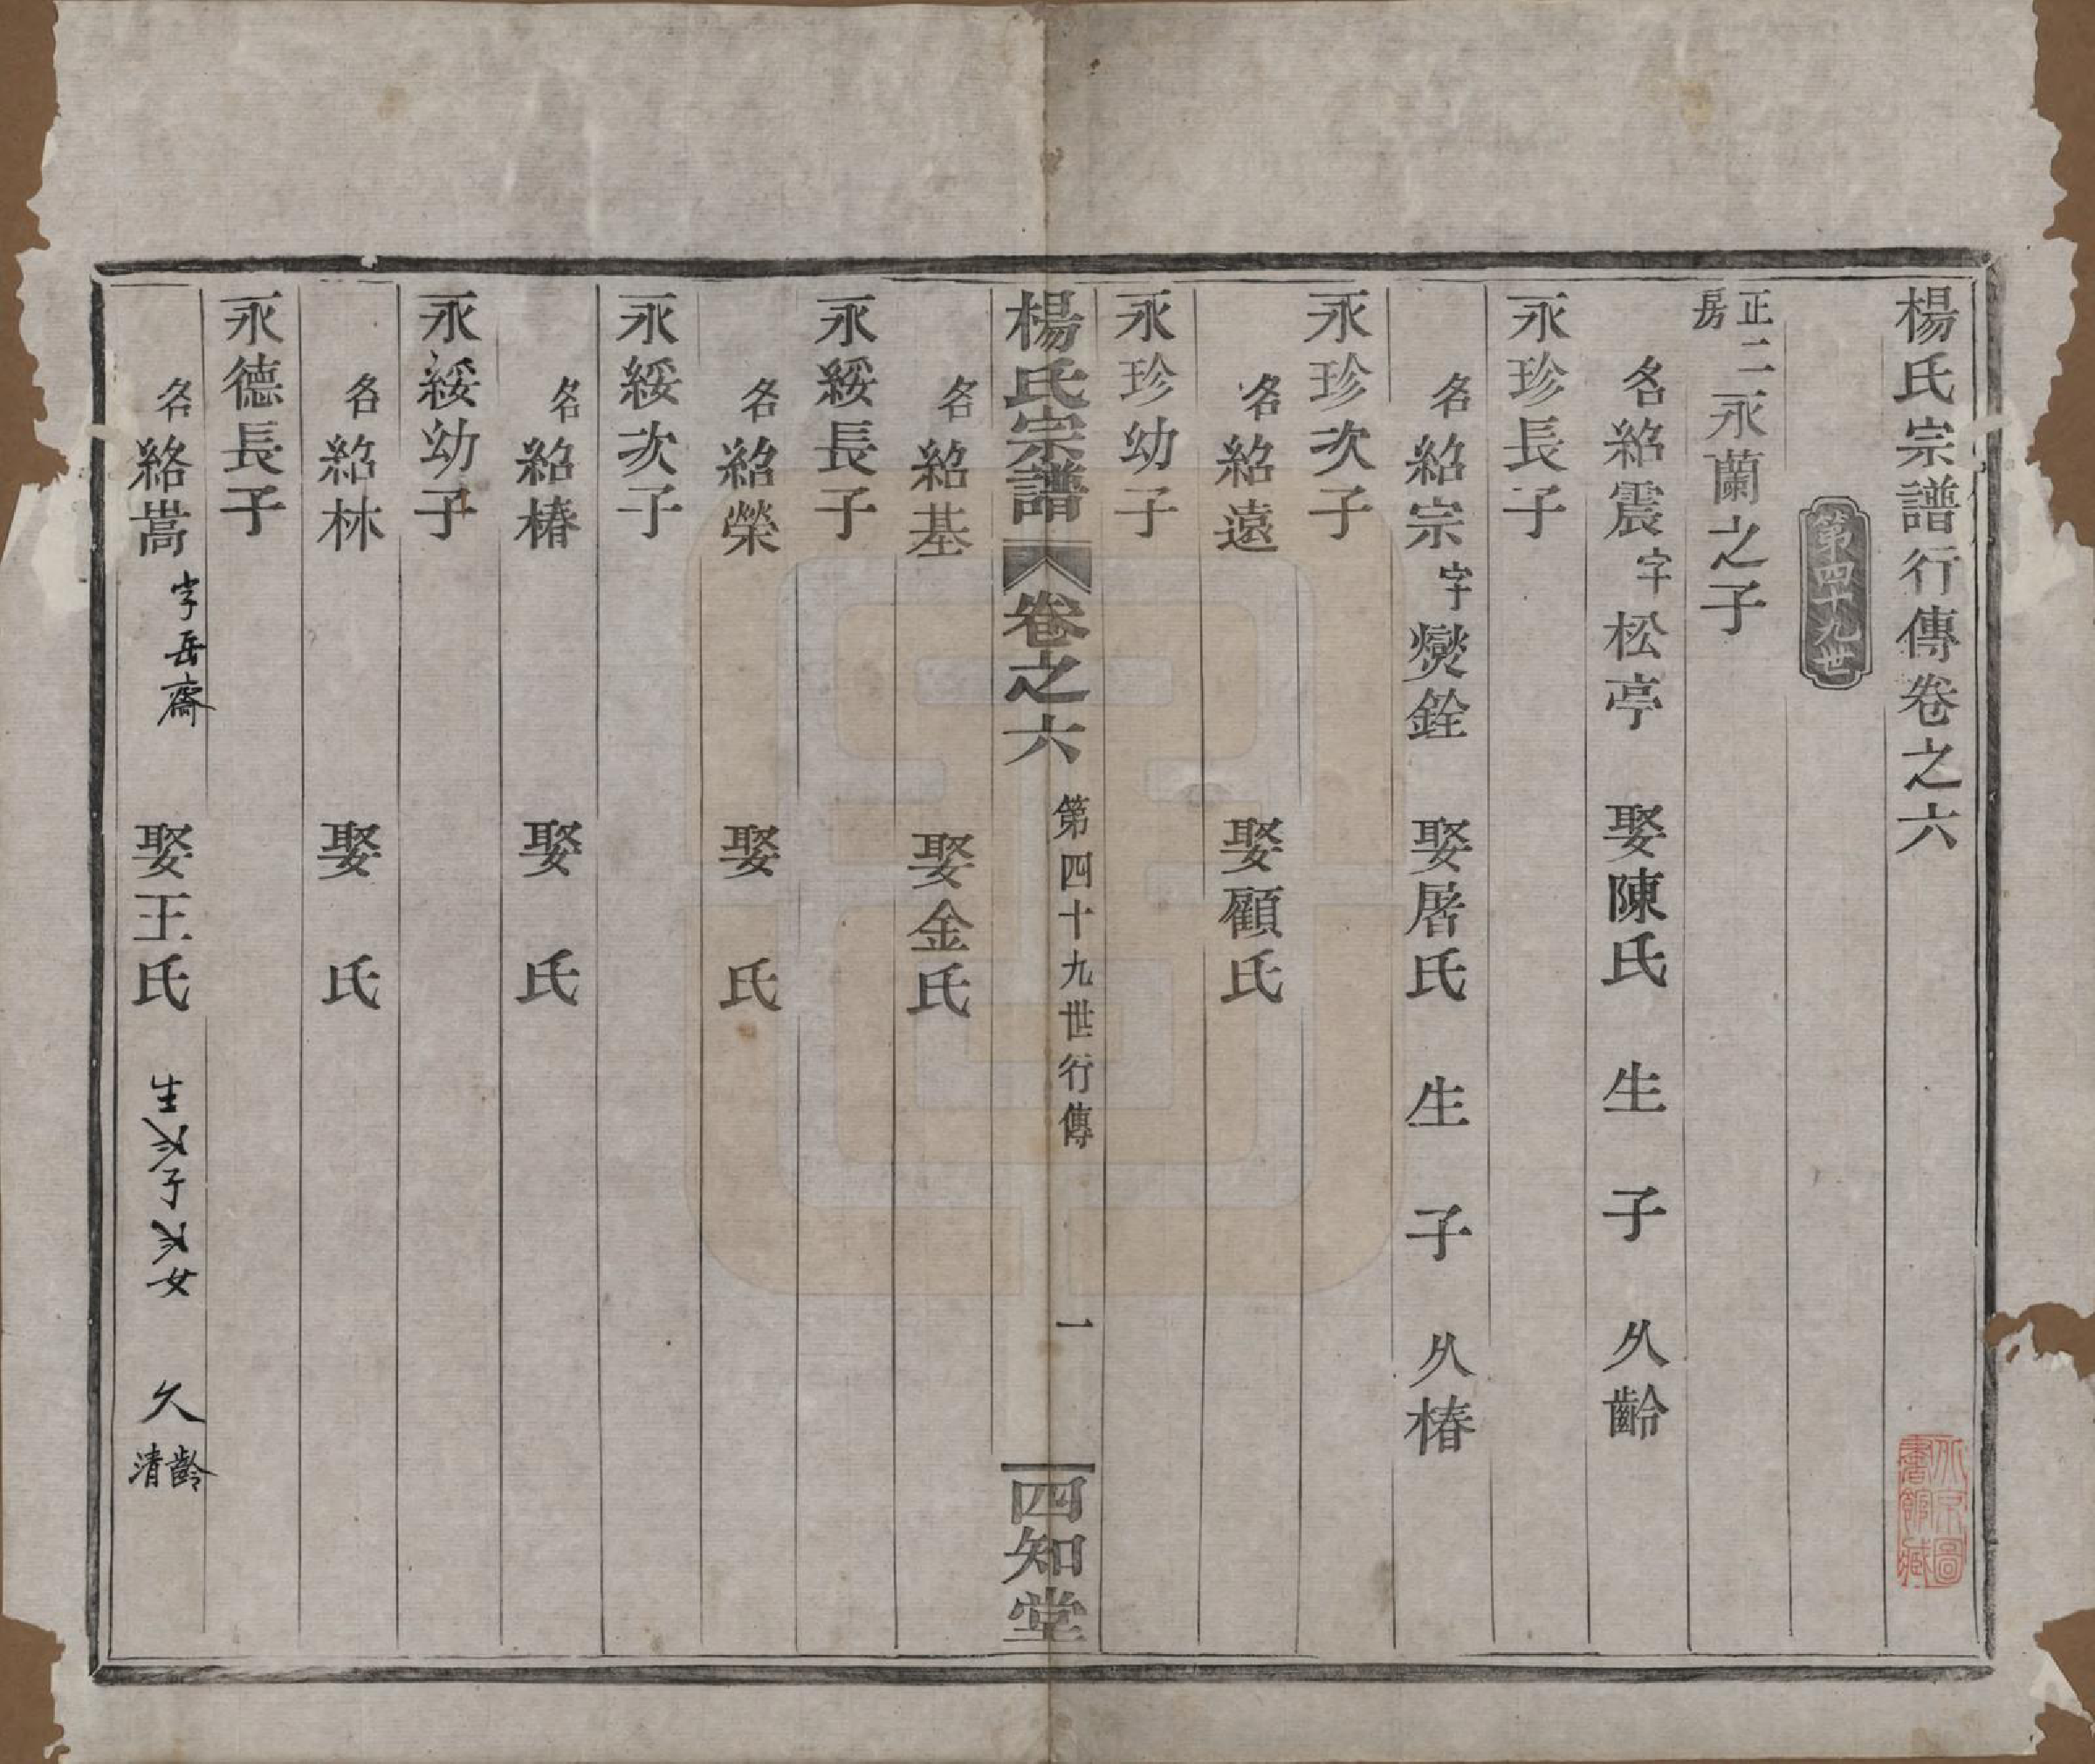 楊氏宗譜行傳卷之六
第四十九世
正二房永蘭之子
名紹震字松亭 娶陳氏 生子 久齡
永珍長子
名紹宗字爕銓 娶屠氏 生子 久椿
永珍次子
名紹遠 娶顧氏
永珍幼子
楊氏宗譜 卷之六 第四十九世行傳 一 四知堂
名紹基 娶金氏
永綏長子
名紹榮 娶 氏
永綏次子
名紹椿 娶 氏
永綏幼子
名紹林 娶 氏
永德長子
名紹嵩 字岳齋 娶王氏 生 子 女 久齡清
北京圖書館藏